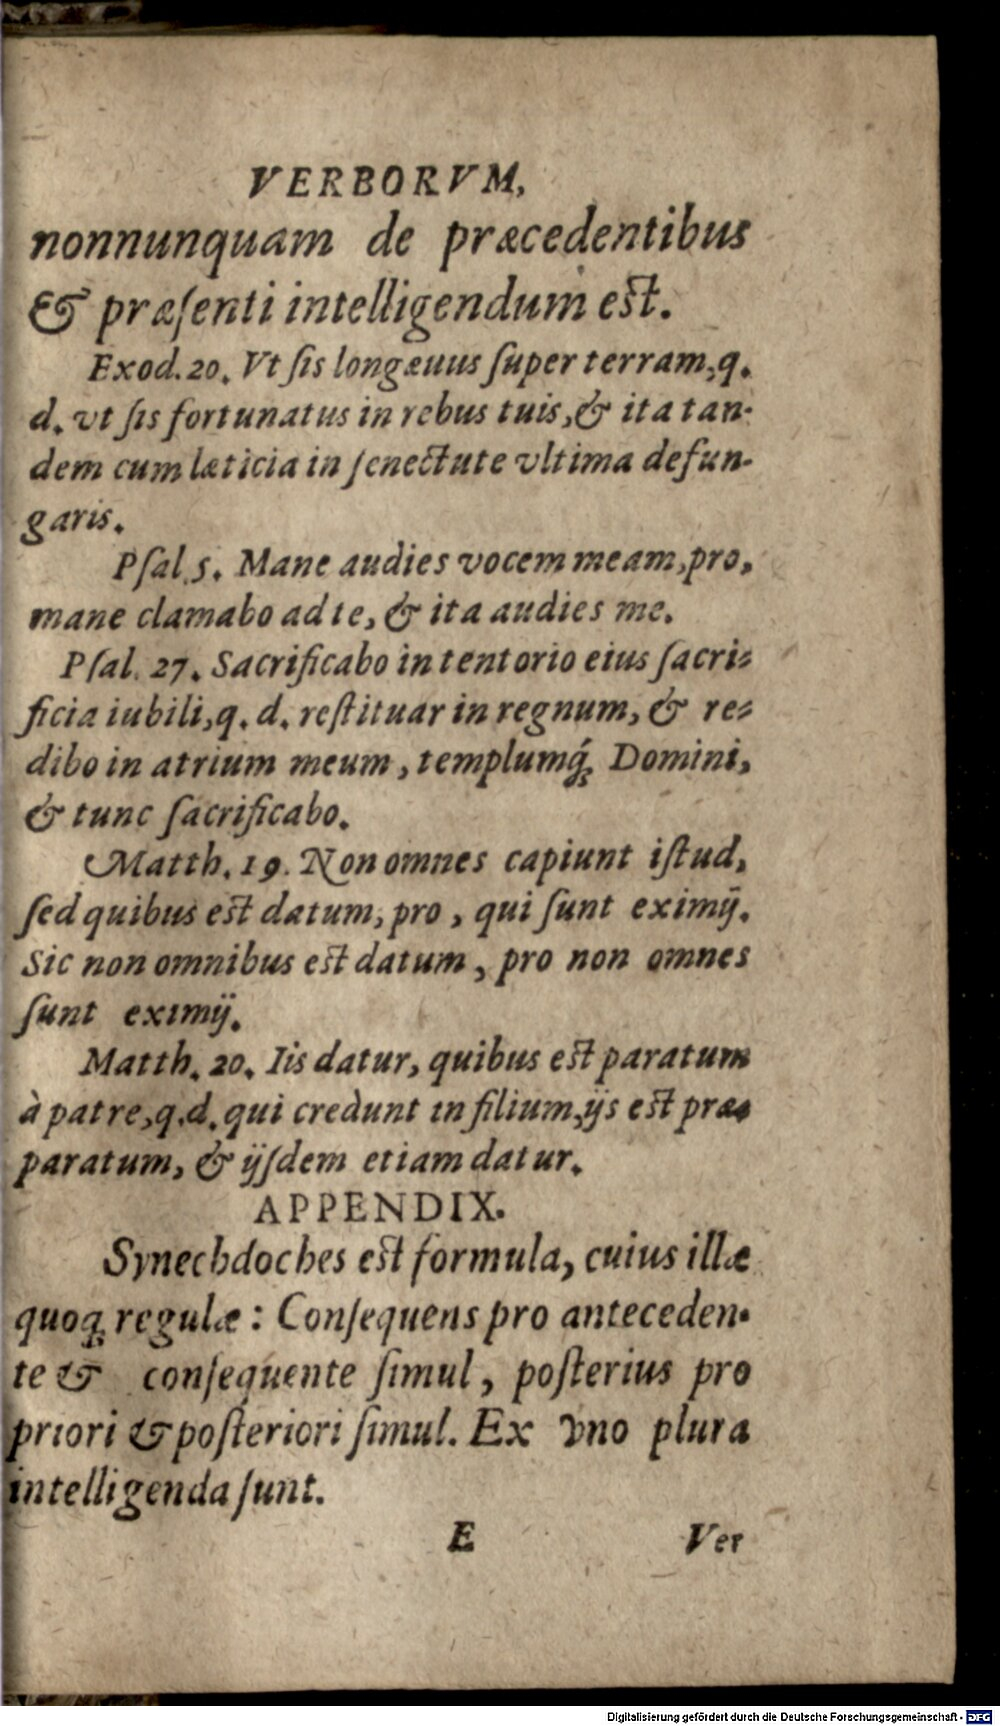 VERBORVM,
nonnunquam de præcedentibus
& præſenti intelligendum est.
Exod. 20. Vt ſis longæuus ſuper terram, q.
d. vt ſis fortunatus in rebus tuis, & ita tan-
dem cum læticia in ſenectute vltima defun-
garis.
Pſal. 5. Mane audies vocem meam, pro,
mane clamabo ad te, & ita audies me.
Pſal. 27. Sacrificabo in tentorio eius ſacri-
ficia iubili, q. d. reſtituar in regnum, & re-
dibo in atrium meum, templumq́; Domini,
& tunc ſacrificabo.
Matth. 19. Non omnes capiunt iſtud,
ſed quibus est datum, pro, qui ſunt eximij.
Sic non omnibus est datum, pro non omnes
ſunt eximij.
Matth. 20. Iis datur, quibus est paratum
à patre, q. d. qui credunt in filium, ijs est præ-
paratum, & ijſdem etiam datur.
APPENDIX.
Synechdoches est formula, cuius illæ
quoq; regulæ: Conſequens pro anteceden-
te & conſequente ſimul, poſterius pro
priori & poſteriori ſimul. Ex vno plura
intelligenda ſunt.
E Ver
Digitalisierung gefördert durch die Deutsche Forschungsgemeinschaft - DFG